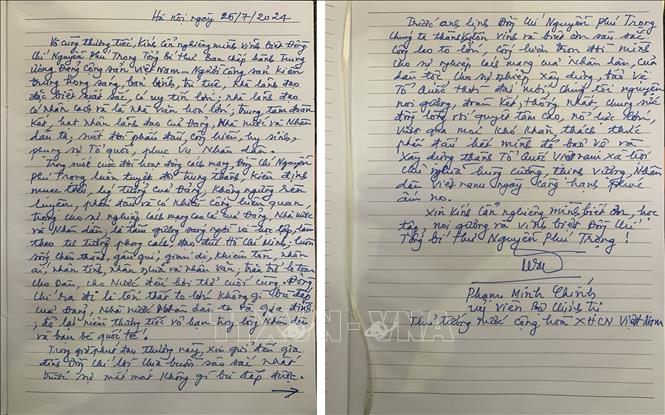 Hà nội ngày 25/7/2024
Vô cùng thương tiếc, kính cẩn nghiêng mình vĩnh biệt Đồng
Chí Nguyễn Phú Trọng Tổng Bí thư Ban chấp hành Trung
ương Đảng Cộng sản Việt Nam. Người Cộng sản kiên
trung trong sáng, bản lĩnh, trí tuệ, Nhà lãnh đạo
đặc biệt xuất sắc, có uy tín lớn; nhà lãnh đạo
có nhân cách và là nhà văn hóa lớn; trung tâm đoàn
kết, hạt nhân lãnh đạo của Đảng, Nhà nước và Nhân
dân ta; suốt đời phấn đấu, cống hiến, hy sinh,
phụng sự Tổ quốc, phục vụ Nhân dân.
Trong suốt cuộc đời hoạt động cách mạng, Đồng Chí Nguyễn
Phú Trọng luôn tuyệt đối trung thành, kiên định
mục tiêu, lý tưởng của Đảng, không ngừng rèn
luyện, phấn đấu và có nhiều cống hiến quan
trọng cho sự nghiệp cách mạng của Đảng, Nhà nước
và Nhân dân; là tấm gương sáng ngời về học tập, làm
theo tư tưởng phong cách, đạo đức Hồ Chí Minh; luôn
sống chân thành, gần gũi, giản dị, khiêm tốn, nhân
ái, nhân tình, nhân nghĩa và nhân văn; trăn trở lo toan
cho Dân, cho Nước đến hơi thở cuối cùng. Đồng
Chí ra đi là tổn thất to lớn không gì bù đắp
của Đảng, Nhà nước, Nhân dân ta và gia đình;
để lại niềm thương tiếc vô hạn trong lòng Nhân dân
và bạn bè quốc tế.
Trong giờ phút đau thương này, xin gửi đến gia
đình Đồng Chí lời chia buồn sâu sắc nhất
trước sự mất mát không gì bù đắp được.
Trước anh linh Đồng Chí Nguyễn Phú Trọng
chúng ta thành kính và biết ơn sâu sắc
công lao to lớn, cống hiến trọn đời mình
cho sự nghiệp cách mạng của Nhân dân, của
dân tộc, cho sự nghiệp xây dựng, bảo vệ
Tổ quốc thời đại mới; chúng tôi nguyện
noi gương, đoàn kết, thống nhất, chung sức
đồng lòng với quyết tâm cao, nỗ lực lớn,
vượt qua mọi khó khăn, thách thức
phấn đấu hết mình để bảo vệ và
xây dựng thành Tổ quốc Việt Nam xã hội
chủ nghĩa hùng cường, thịnh vượng, Nhân
dân Việt Nam ngày càng hạnh phúc
ấm no.
Xin kính cẩn nghiêng mình biết ơn, học
tập, noi gương và vĩnh biệt Đồng Chí
Tổng bí thư Nguyễn Phú Trọng!
Phạm Minh Chính
Uỷ viên Bộ Chính trị
Thủ tướng nước cộng hòa XHCN Việt Nam